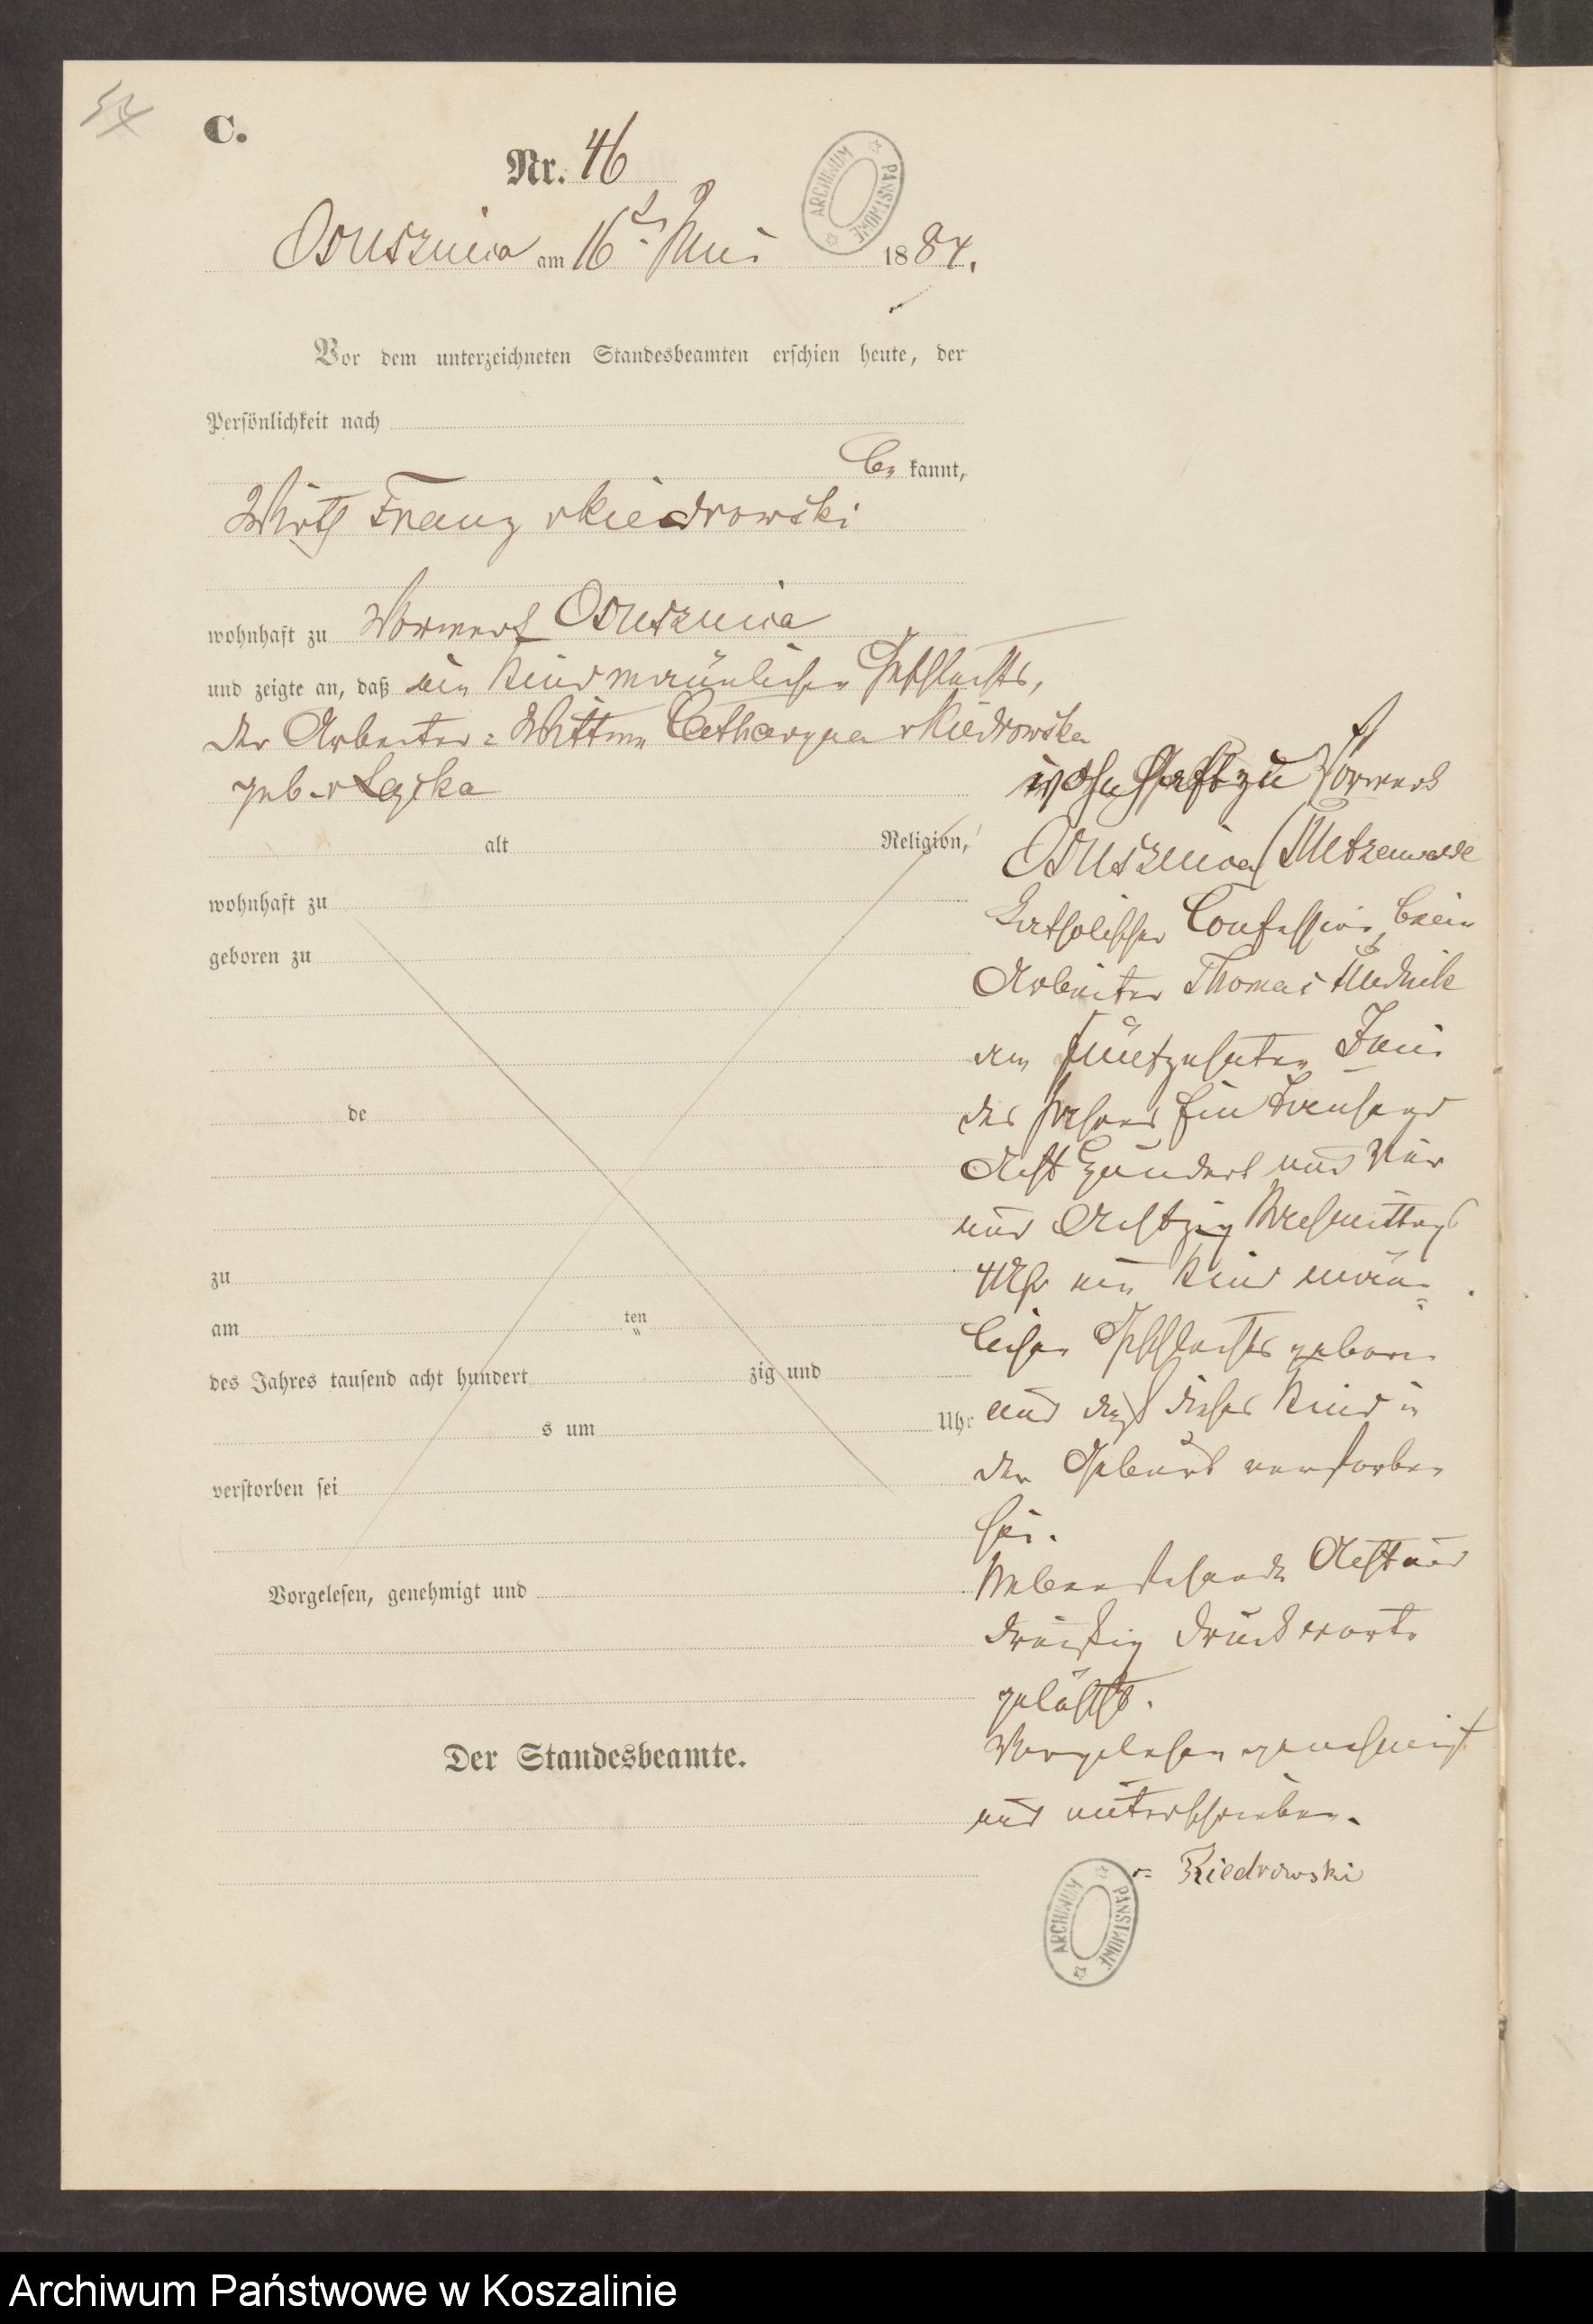 C.
Nr. 46
ARCHIWUM PAŃSTWOWE
Osusznica am 16t Juni 1884.
Vor dem unterzeichneten Standesbeamten erschien heute, der
Persönlichkeit nach
be kannt,
Wirth Franz v Kiedrowski
wohnhaft zu Vorwerk Osusznica
und zeigte an, daß ein Kind mänlichen Geschlechts,
der Arbeiter = Wittwe Catharyna v Kiedrowska
geb. v
alt Religion,
wohnhaft zu
geboren zu
de
zu
am ten
des Jahres tausend acht hundert zig und
s um Uhr
verstorben sei
Vorgelesen, genehmigt und
Der Standesbeamte.
wohnhaft zu Vorwerk
Osusznica
katholischer Confession beim
Arbeiter Thomas
den fünfzehnten Juni
des Jahres Ein Tausend
Acht Hundert und Vier
und Achtzig Nachmittags
Uhr ein Kind män-
lichen Geschlechts geboren
und daß dieses Kind in
der Geburt verstorben
sei.
Nebenstehende Acht und
dreißig Druckworte
gelöscht.
Vorgelesen genehmigt
und unterschrieben.
v. Kiedrowski
ARCHIWUM PAŃSTWOWE
Archiwum Państwowe w Koszalinie